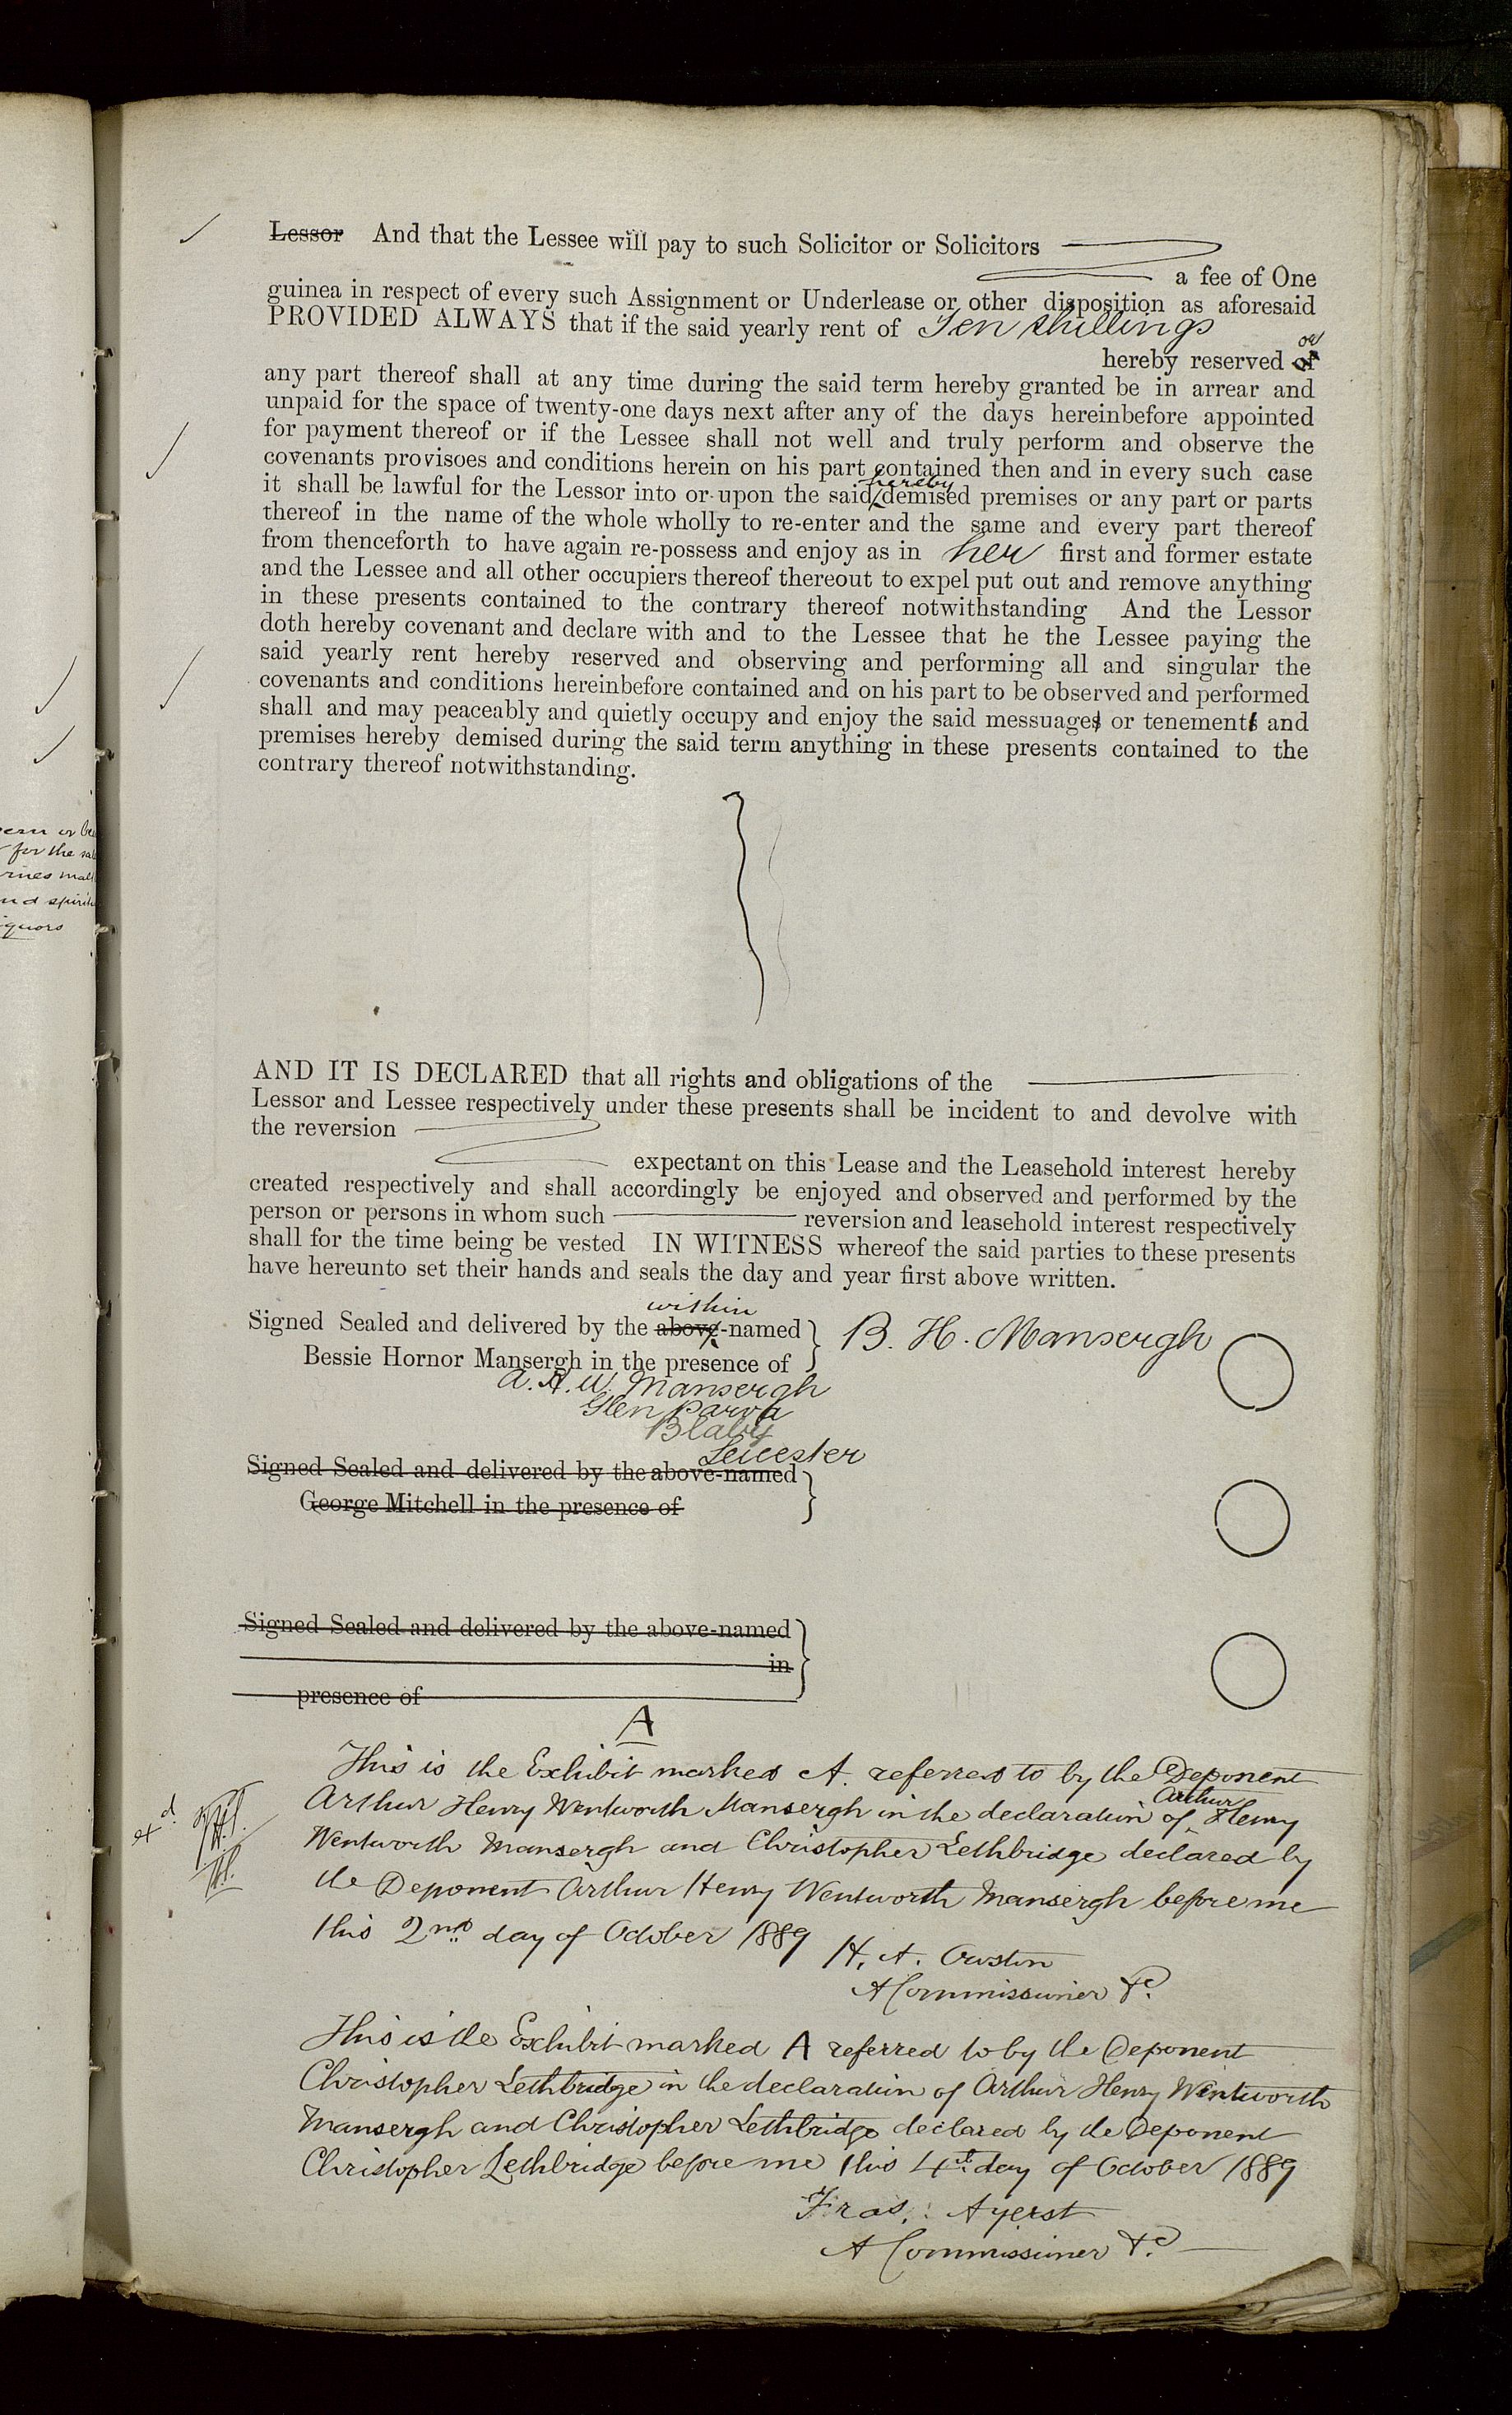 Lessor And that the Lessee will pay to such Solicitor or Solicitors
a fee of One
guinea in respect of every such Assignment or Underlease or other disposition as aforesaid
PROVIDED ALWAYS that if the said yearly rent of Ten shillings
or
hereby reserved of
any part thereof shall at any time during the said term hereby granted be in arrear and
unpaid for the space of twenty-one days next after any of the days hereinbefore appointed
for payment thereof or if the Lessee shall not well and truly perform and observe the
covenants provisoes and conditions herein on his part contained then and in every such case
hereby
it shall be lawful for the Lessor into or upon the said demised premises or any part or parts
thereof in the name of the whole wholly to re-enter and the same and every part thereof
from thenceforth to have again re-possess and enjoy as in her first and former estate
and the Lessee and all other occupiers thereof thereout to expel put out and remove anything
in these presents contained to the contrary thereof notwithstanding And the Lessor
doth hereby covenant and declare with and to the Lessee that he the Lessee paying the
said yearly rent hereby reserved and observing and performing all and singular the
covenants and conditions hereinbefore contained and on his part to be observed and performed
shall and may peaceably and quietly occupy and enjoy the said messuages or tenements and
premises hereby demised during the said term anything in these presents contained to the
contrary thereof notwithstanding.
ern or
for the
rines mal
nd spirit
iquors
AND IT IS DECLARED that all rights and obligations of the
Lessor and Lessee respectively under these presents shall be incident to and devolve with
the reversion
expectant on this Lease and the Leasehold interest hereby
created respectively and shall accordingly be enjoyed and observed and performed by the
person or persons in whom such reversion and leasehold interest respectively
shall for the time being be vested IN WITNESS whereof the said parties to these presents
have hereunto set their hands and seals the day and year first above written.
within
Signed Sealed and delivered by the above-named B. H. Mansergh
Bessie Hornor Mansergh in the presence of
A. H. W. Mansergh
Glen Parva
Blaby
Leicester
Signed Sealed and delivered by the above-named
George Mitchell in the presence of
Signed Sealed and delivered by the above-named
in
presence of
A
This is the Exhibit marked A. referred to by the Deponent
Arthur
Arthur Henry Wentworth Mansergh in the declaration of Henry
Wentworth Mansergh and Christopher Lethbridge declared by
the Deponent Arthur Henry Wentworth Mansergh before me
this 2nd day of October 1889
H. A. Owston
A Commissioner &c.
This is the Exhibit marked A referred to by the Deponent
Christopher Lethbridge in the declaration of Arthur Henry Wentworth
Mansergh and Christopher Lethbridge declared by the Deponent
Christopher Lethbridge before me this 4th day of October 1889
Fras. : Ayerst
A Commissioner &c.
exd